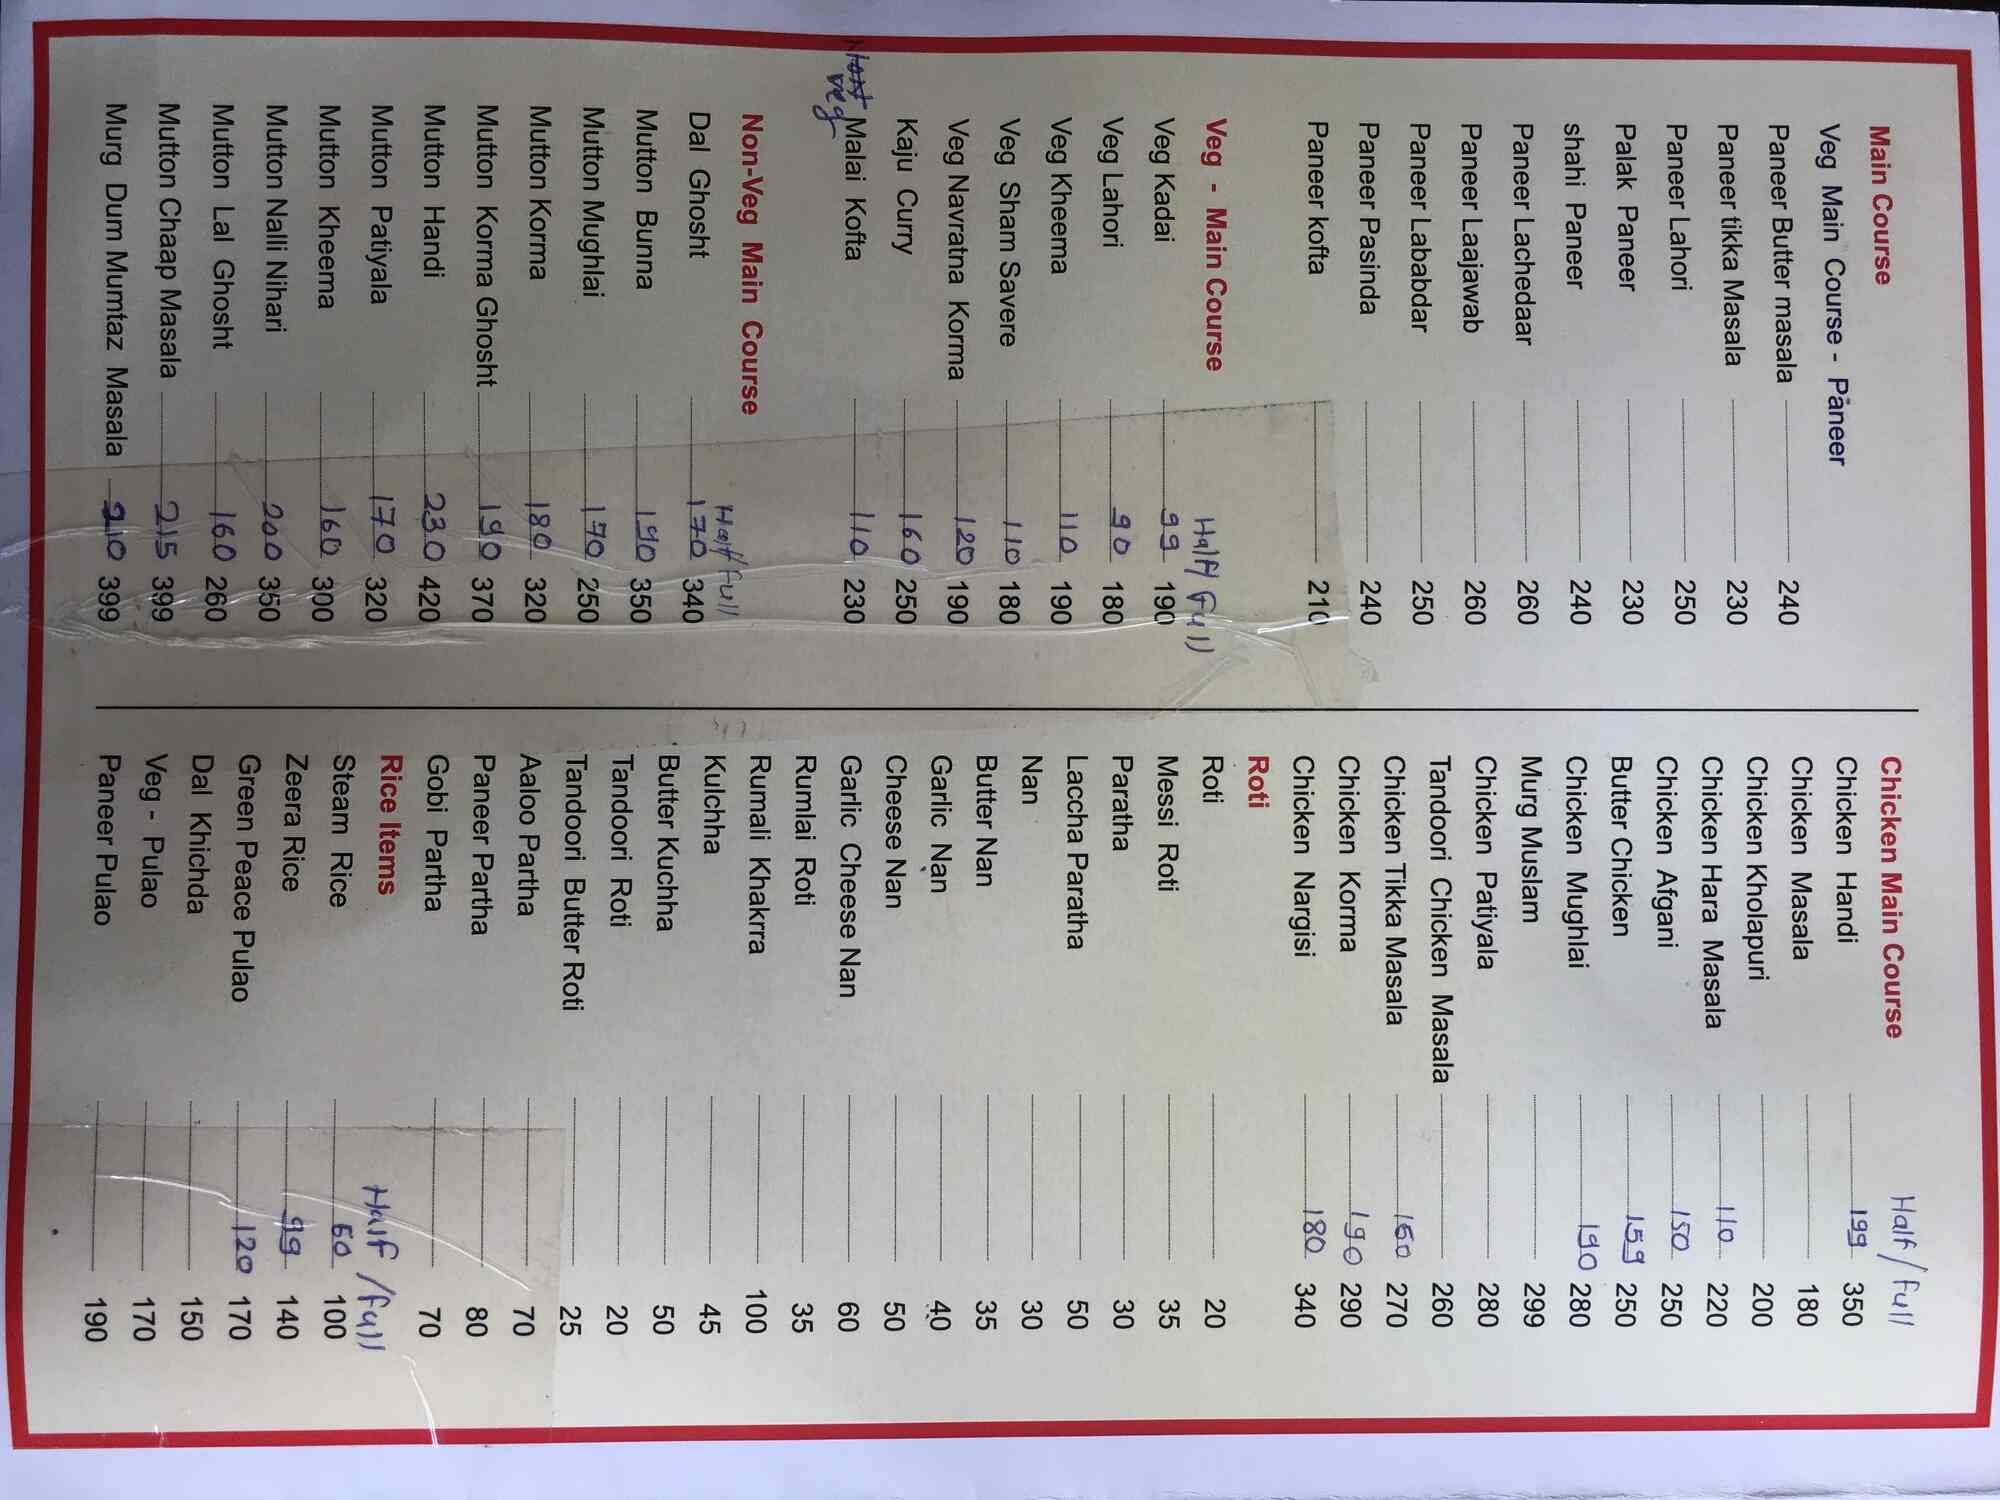 Main Course
Veg Main Course - Paneer
Paneer Butter masala 240
Paneer tikka Masala 230
Paneer Lahori 250
Palak Paneer 230
shahi Paneer 240
Paneer Lachedaar 260
Paneer Laajawab 260
Paneer Lababdar 250
Paneer Pasinda 240
Paneer kofta 210
Veg - Main Course Half/ Full
Veg Kadai 99 190
Veg Lahori 90 180
Veg Kheema 110 190
Veg Sham Savere 110 180
Veg Navratna Korma 120 190
Kaju Curry 160 250
veg Malai Kofta 110 230
Non-Veg Main Course Half/full
Dal Ghosht 170 340
Mutton Bunna 190 350
Mutton Mughlai 170 250
Mutton Korma 180 320
Mutton Korma Ghosht 190 370
Mutton Handi 230 420
Mutton Patiyala 170 320
Mutton Kheema 160 300
Mutton Nalli Nihari 200 350
Mutton Lal Ghosht 160 260
Mutton Chaap Masala 215 399
Murg Dum Mumtaz Masala 210 399
Chicken Main Course Half/full
Chicken Handi 199 350
Chicken Masala 180
Chicken Kholapuri 200
Chicken Hara Masala 110 220
Chicken Afgani 150 250
Butter Chicken 159 250
Chicken Mughlai 190 280
Murg Muslam 299
Chicken Patiyala 280
Tandoori Chicken Masala 260
Chicken Tikka Masala 160 270
Chicken Korma 190 290
Chicken Nargisi 180 340
Roti
Roti 20
Messi Roti 35
Paratha 30
Laccha Paratha 50
Nan 30
Butter Nan 35
Garlic Nan 40
Cheese Nan 50
Garlic Cheese Nan 60
Rumlai Roti 35
Rumali Khakrra 100
Kulchha 45
Butter Kuchha 50
Tandoori Roti 20
Tandoori Butter Roti 25
Aaloo Partha 70
Paneer Partha 80
Gobi Partha 70
Rice Items Half/full
Steam Rice 60 100
Zeera Rice 99 140
Green Peace Pulao 120 170
Dal Khichda 150
Veg - Pulao 170
Paneer Pulao 190